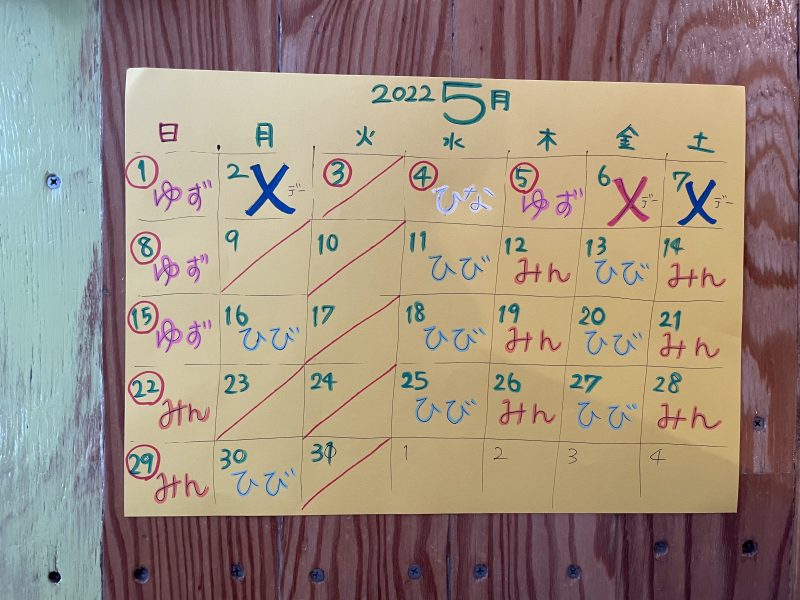 2022 5月
日 月 火 水 木 金 土
1 2 3 4 5 6 7
ゆず X デー ひな ゆず X デー X デー
8 9 10 11 12 13 14
ゆず ひび みん ひび みん
15 16 17 18 19 20 21
ゆず ひび ひび みん ひび みん
22 23 24 25 26 27 28
みん ひび みん ひび みん
29 30 31 1 2 3 4
みん ひび